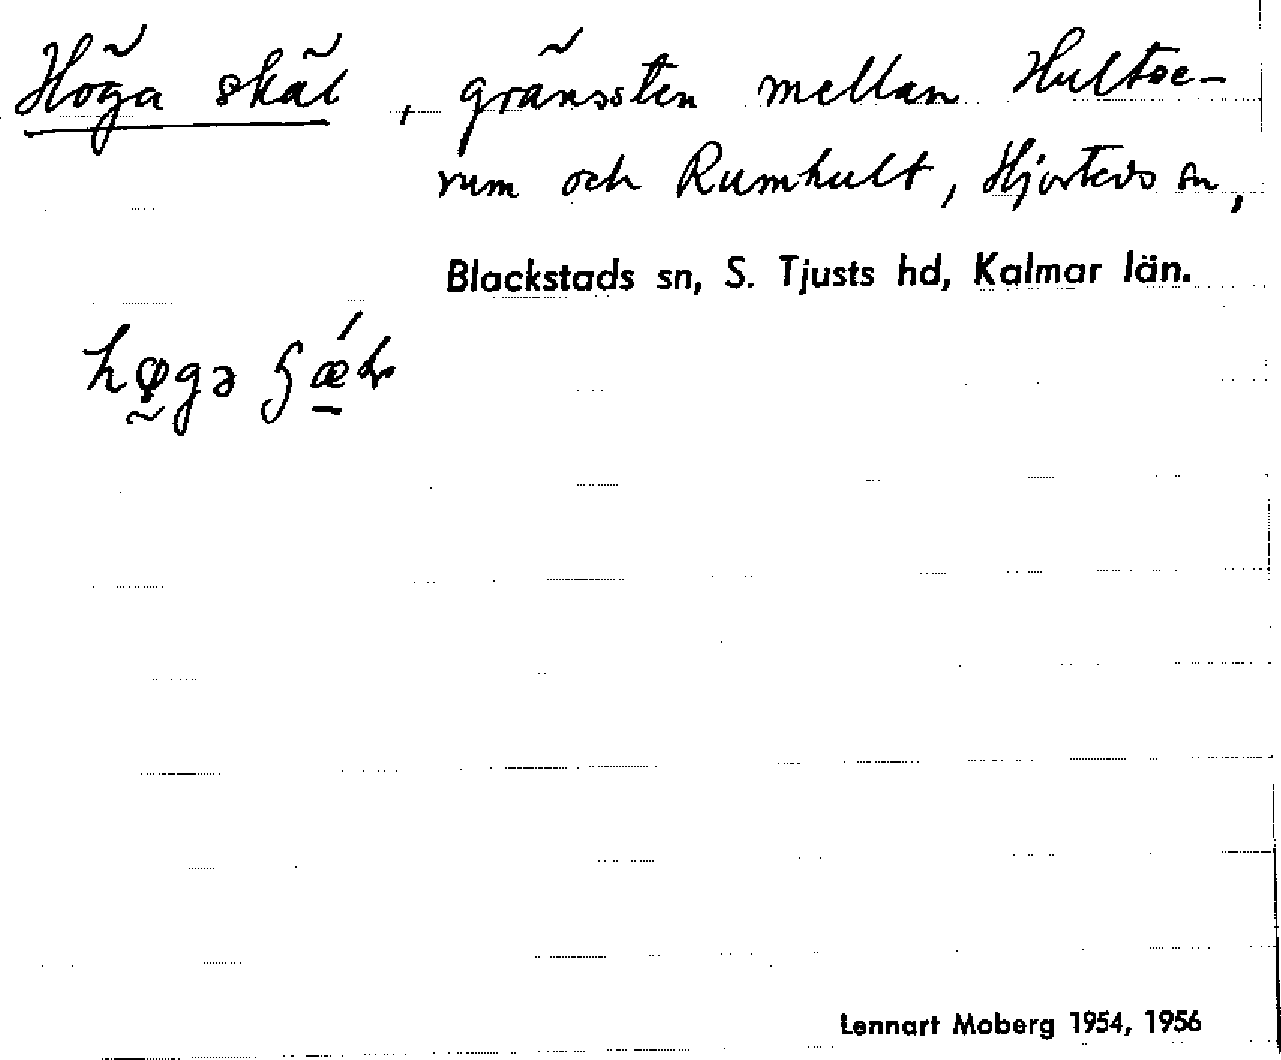 Höga skäl, gränssten mellan Hultse-
rum och Rumhult, Hjorteds sn,
Blackstads sn, S. Tjusts hd, Kalmar län.
Lennart Moberg 1954, 1956